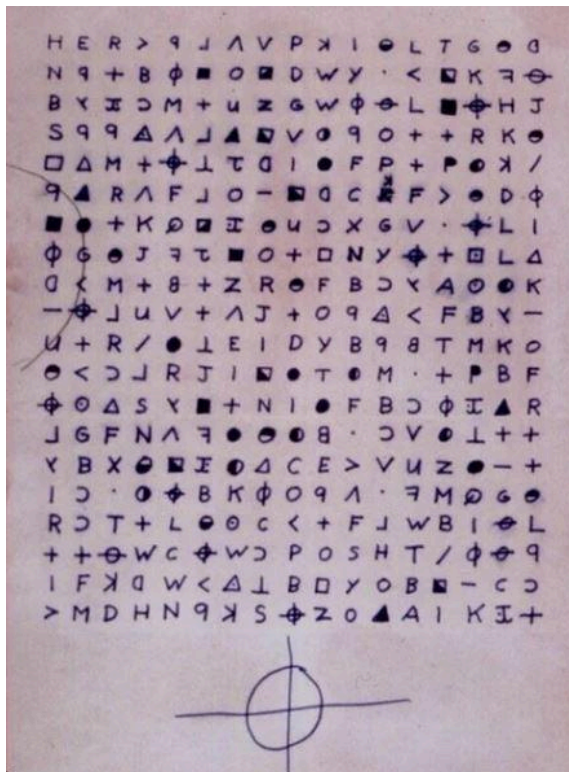 H E R > ꟼ ⅃ Λ V P ꓘ I ◒ L T G ◓ ᗡ
N ꟼ + B Φ ■ O ◪ D W Y · < ◩ K ꟻ ⊖
B ⅄ 工 Ɔ M + U Z G W Φ ⊖ L ■ ⌖ H J
S ꟼ ꟼ ◬ Λ ⅃ ▲ ◩ V ◑ ꟼ O + + R K ◓
□ △ M + ⌖ ⊥ τ ᗡ I ● F P + P ◐ ꓘ /
ꟼ ▲ R Λ F ⅃ O - ◩ ᗡ C ꓘ F > ◓ D Φ
■ ● + K ∅ ◪ 工 ◓ U Ɔ X G V · ⌖ L I
Φ G ◓ J ꟻ τ ■ O + □ N Y ⌖ + ⊡ L △
ᗡ < M + 8 + Z R ◓ F B Ɔ ⅄ A ⊙ ◐ K
- ⌖ ⅃ U V + Λ J + O ꟼ ◬ < F B ⅄ -
U + R / ● ⊥ E I D Y B ꟼ 8 T M K O
◓ < Ɔ ⅃ R J I ◩ ● T ◐ M · + P B F
⌖ ⊙ △ S ⅄ ■ + N I ● F B Ɔ Φ 工 ▲ R
⅃ G F N Λ ꟻ ● ◓ ◐ 8 · Ɔ V ◐ ⊥ + +
⅄ B X ◒ ◩ 工 ◐ △ C E > V U Z ● - +
I Ɔ · ◑ ⌖ B K Φ O ꟼ Λ · ꟻ M ∅ G ◓
R Ɔ T + L ◒ ⊙ C < + F ⅃ W B I ⊖ L
+ + ⊖ W C ⌖ W Ɔ P O S H T / Φ ⊖ ꟼ
I F ꓘ ᗡ W < ◬ ⊥ B □ Y O B ◩ - C Ɔ
> M D H N ꟼ ꓘ S ⌖ Z O ▲ A I K 工 +